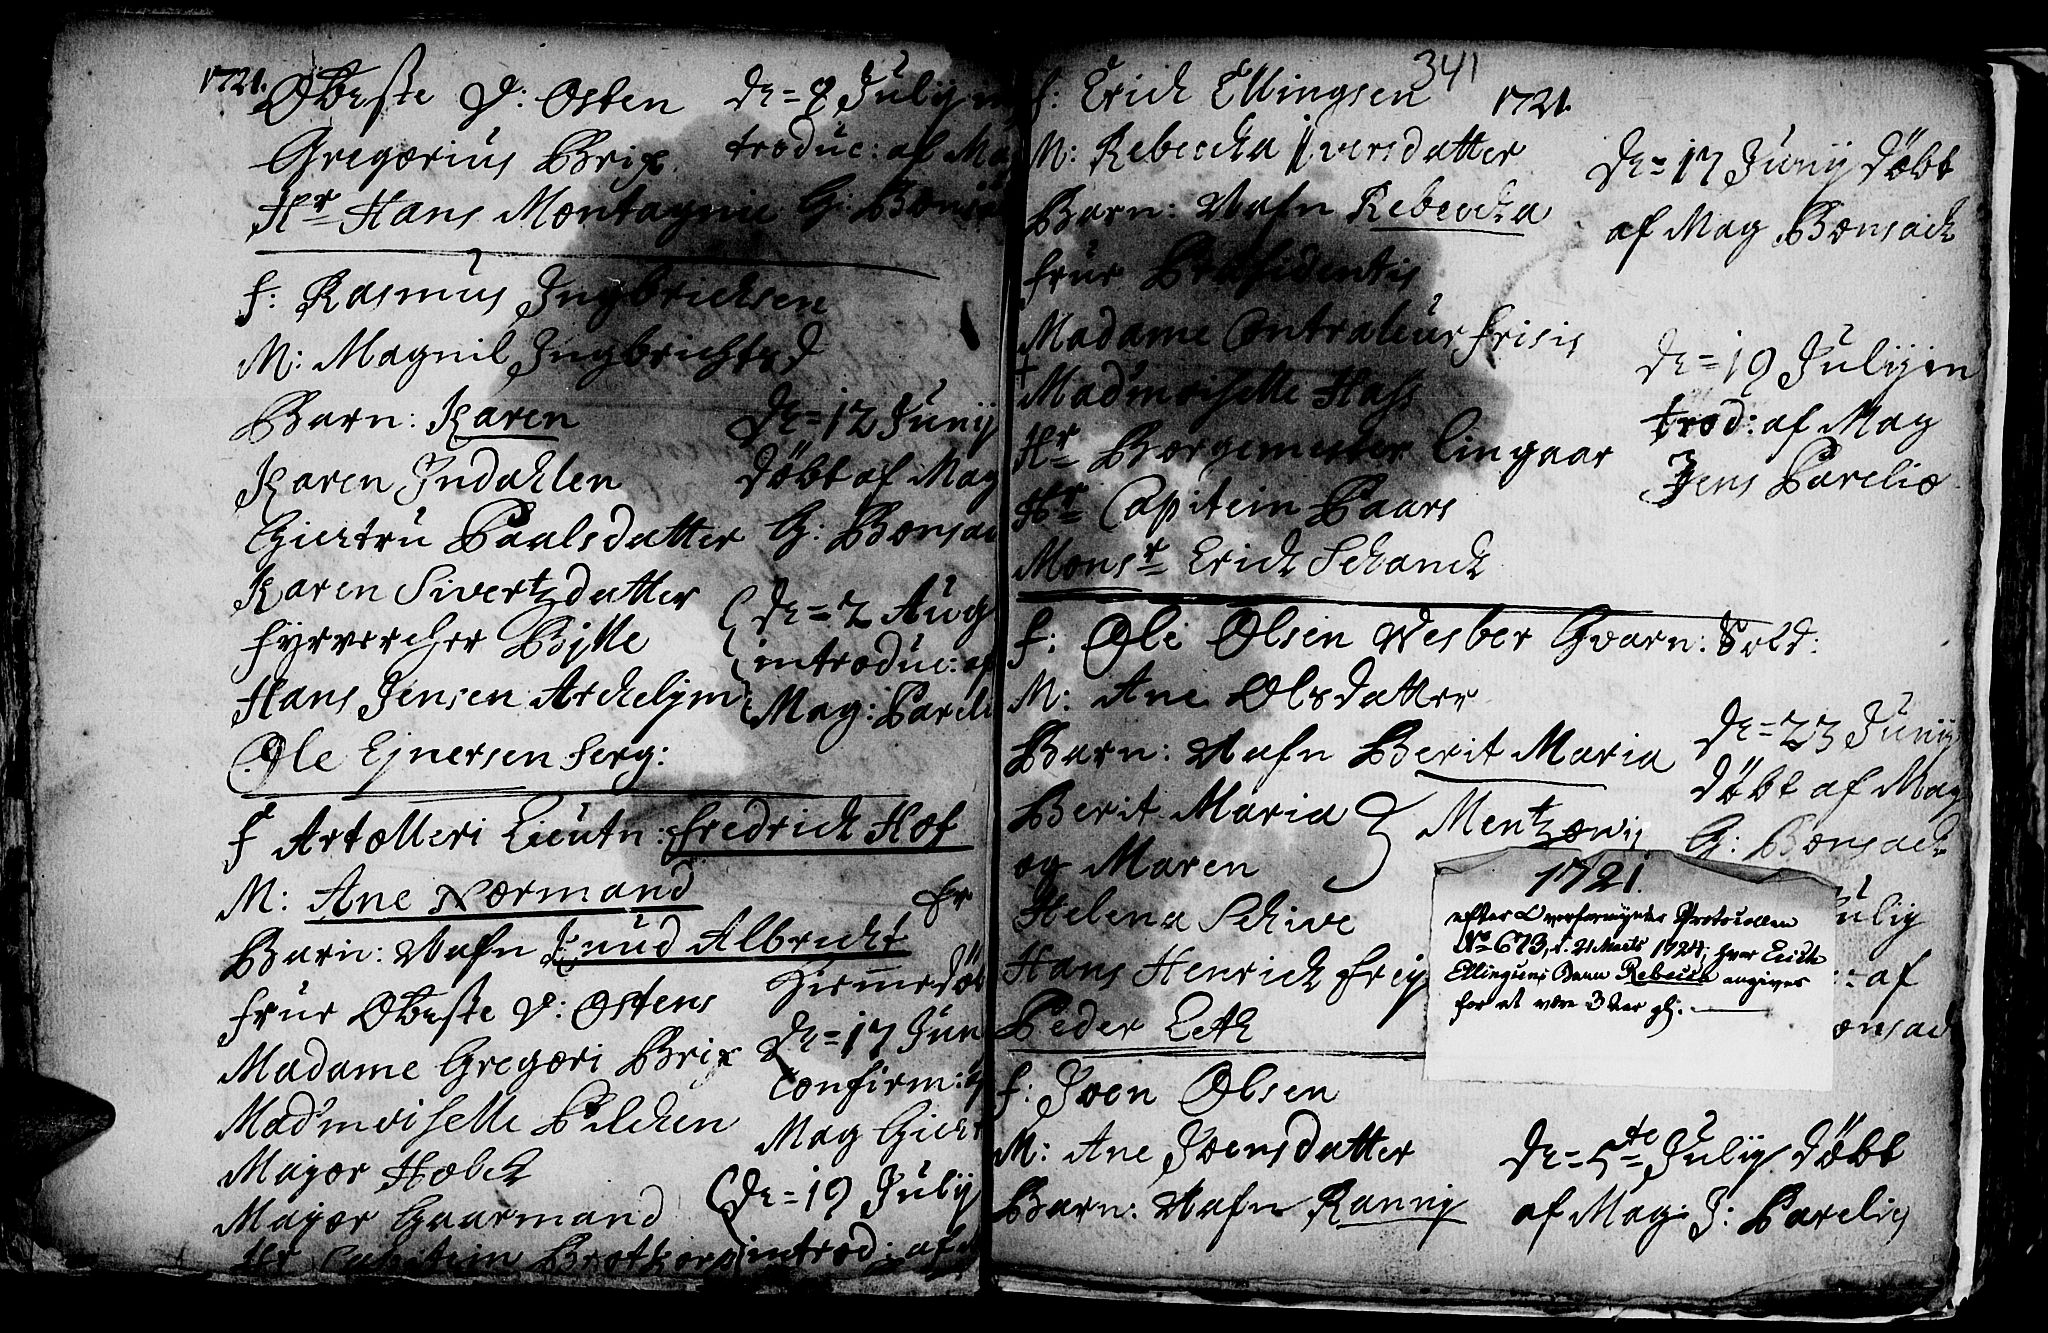 1721.
Obeste V: Osten
Gregorius Brix
Hr Hans Montagnie
de = 8 Julij in
troduc: af Mag
G: Bonsach
f: Rasmus Ingbrichsen
M: Magnil Ingbrichtsd
Barn: Karen
Karen Indahlen
Giertru Paalsdatter
Karen Sivertzdatter
fyrvercher Bille
Hans Jensen Archelym
Ole Ejnersen Serg:
de = 12 Junij
döbt af Mag
G: Bonsac
de = 2 Aug
introduc: af
Mag: Pareli
f Artolleri Lieutn: fredrich Hof
M: Ane Normand
Barn: Nafn Knud Albricht
frur Obeste V: Ostens
Madame Gregori Brix
Mad'moriselle Pilchen
Major Hobek
Major Gaarmand
Hr Capitein Brothorp
fr
Hiemmedöb
de = 17 Jun
Confirm:
Mag Giert
de = 19 Julij
introd: af
341
1721.
f: Erich Ellingsen
M: Rebeccha Iversdatter
Barn: Nafn Rebeccha
frur Præsidentis
Madame Contraleur frisis
Mad'moriselle Hass
Hr Borgemester Lingaar
Hr Capitein Paars
Monsr Erich Schanch
de = 17 Junij döbt
af Mag Bonsach
de = 19 Julij in
trod: af Mag
Jens Parelio
f: Ole Olsen Vesber Gvarn: Sold:
M: Ane Olsdatter
Barn: Nafn Berit Maria
Berit Maria
og Maren
Mentzonij
Helena Schive
Hans Henrich frey
Peder Leth
de = 23 Junij
döbt af Mag
G: Bonsach
ulij
: af
onsach
1721.
efter Overformynder Protocollen
No 673, d. 21 Marts 1724, hvor Erich
Ellingsens Barn Rebecca angives
for at være 3 Aar gl.
f: Joen Olsen
M: Ane Joensdatter
Barn: Nafn Ranny
de = 5te Julij döbt
af Mag: J: Parelij